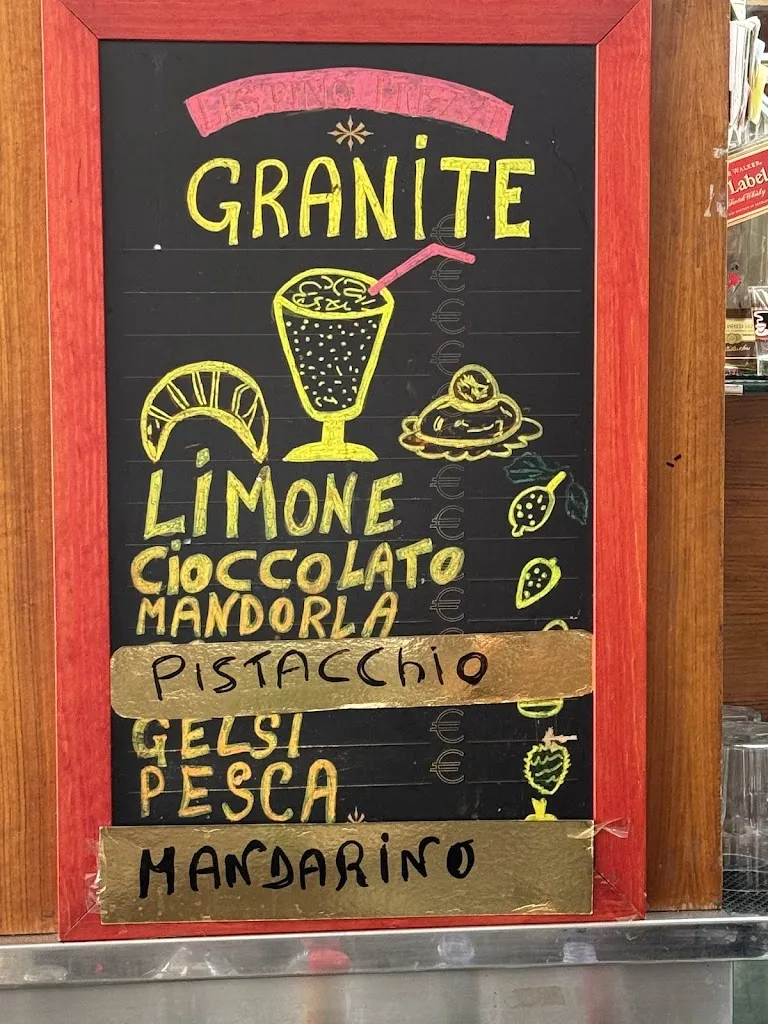 LISTINO PREZZI
GRANiTE
LiMONE
CiOCCOLATO
MANDORLA
PiSTACChiO
GELSI
PESCA
MANDARiNO
WALKER
Label
Scotch Whisky